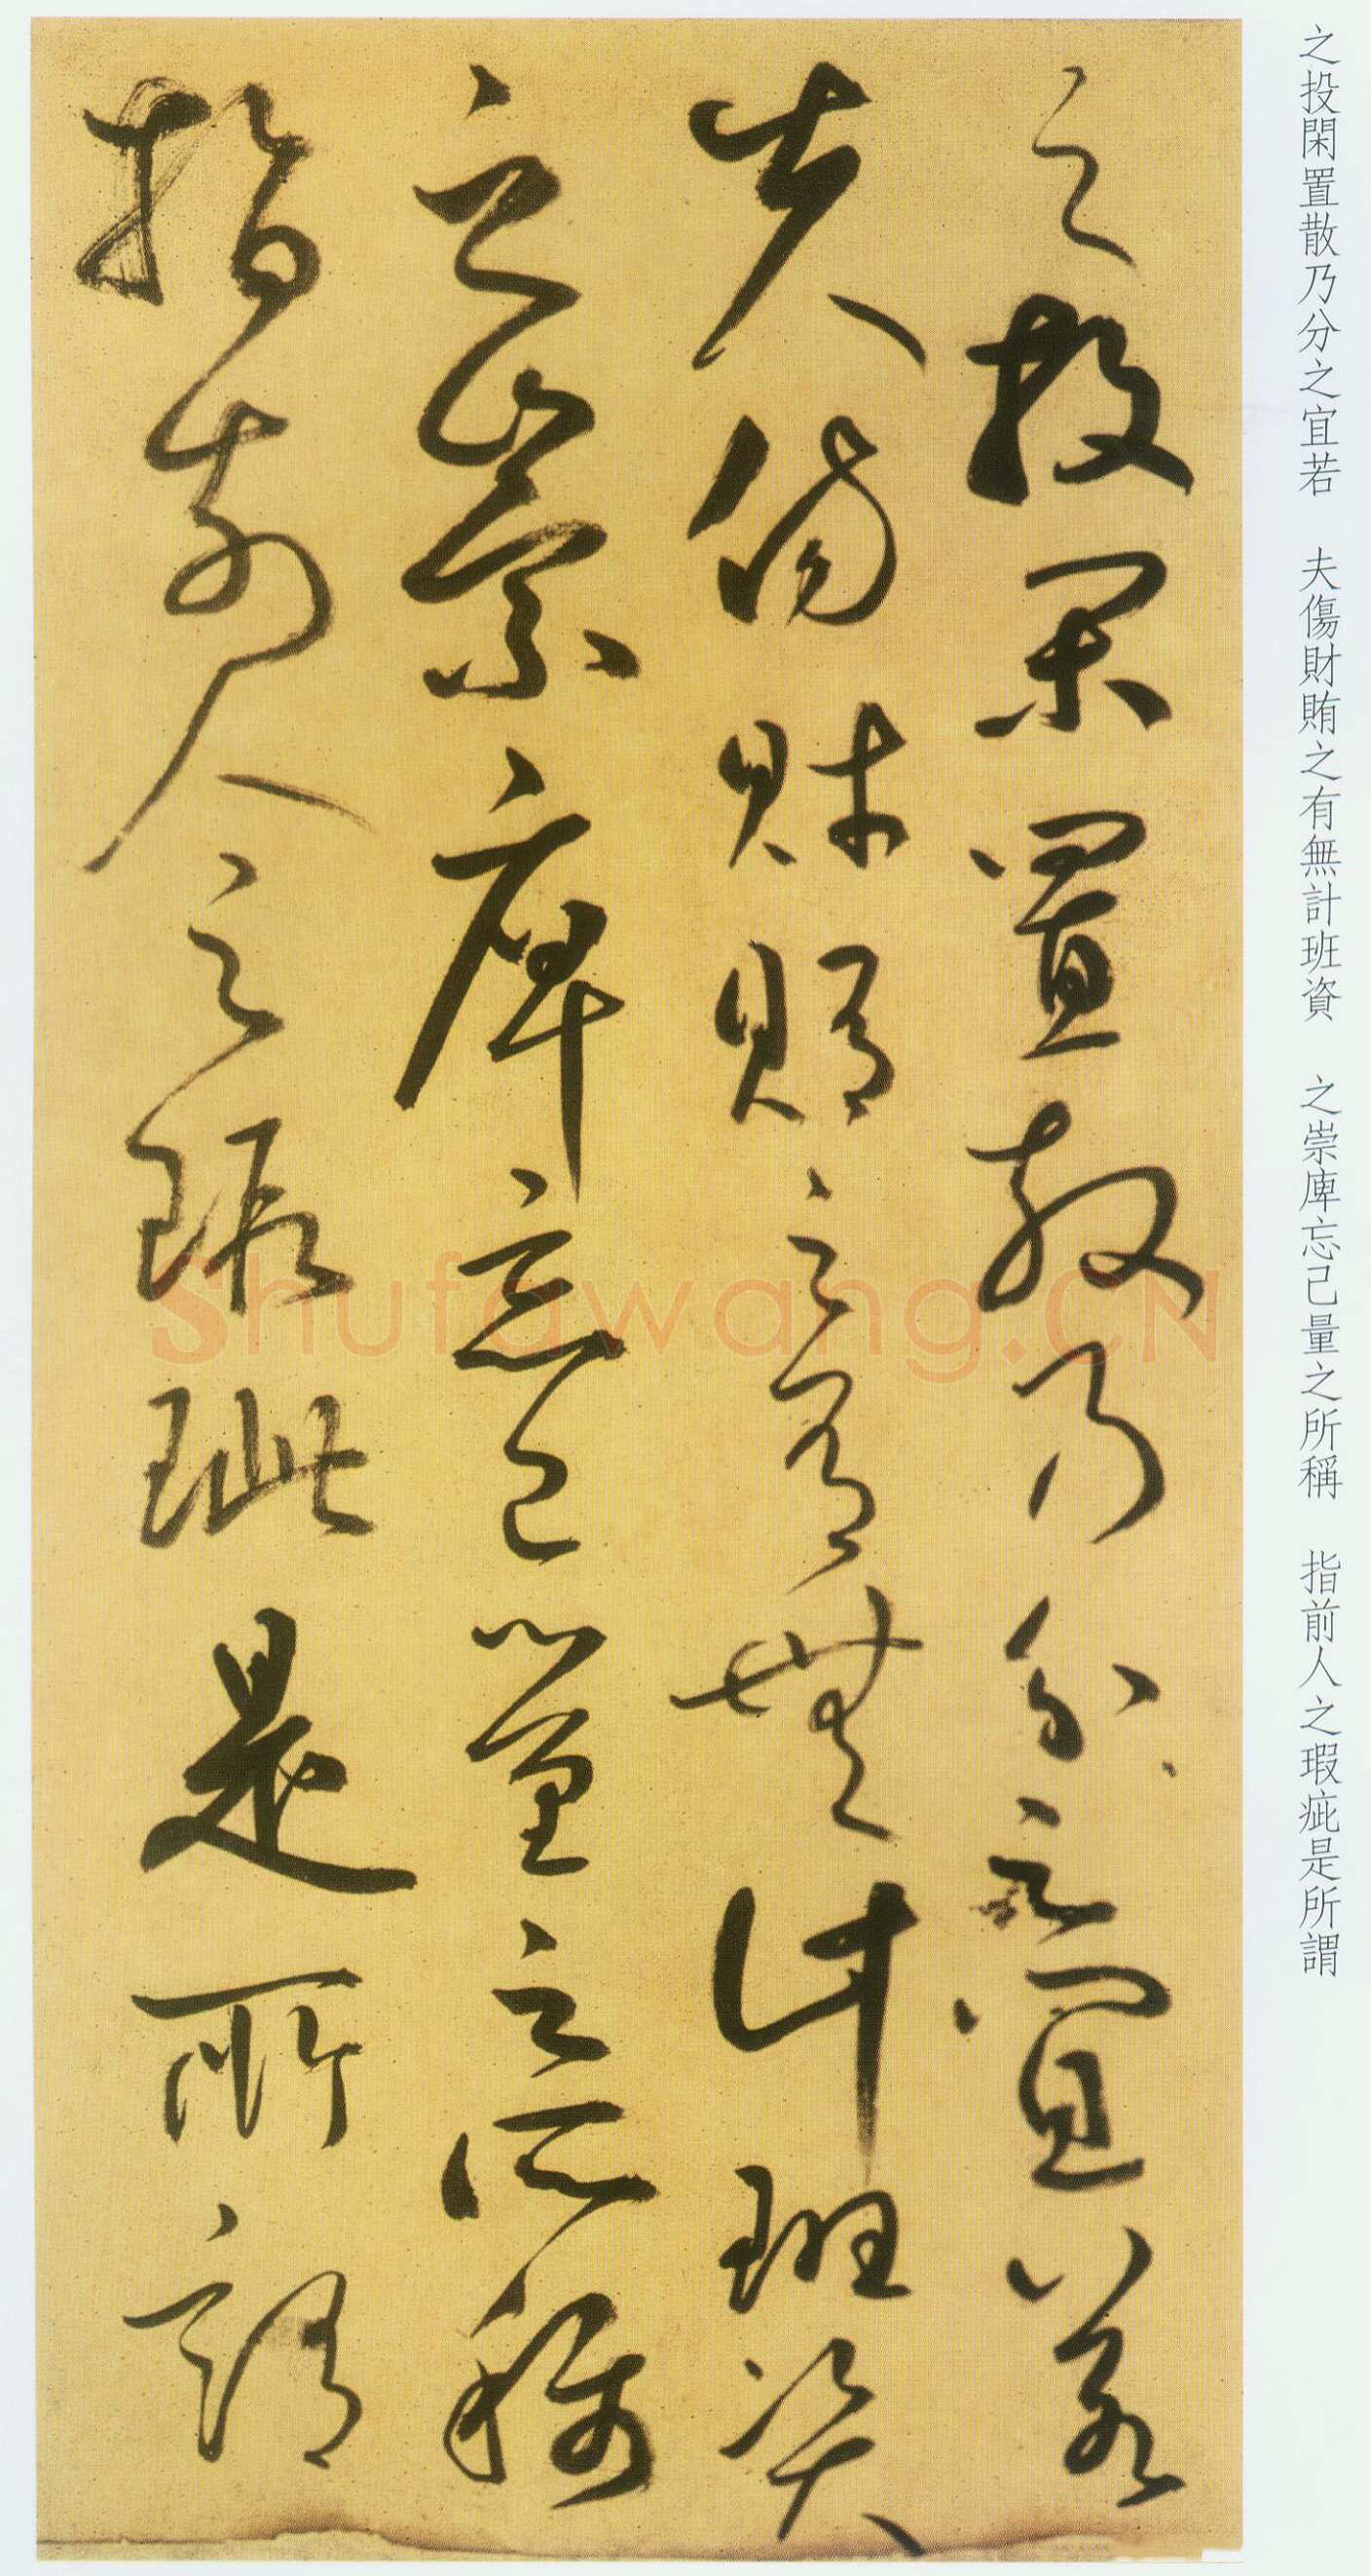 之投閑置散乃分之宜若　夫傷財賄之有無計班資　之崇庳忘己量之所稱　指前人之瑕疵是所謂
之投閑置散乃分之宜若
夫傷財賄之有無計班資
之崇庳忘己量之所稱
指前人之瑕疵是所謂
Shufawang.CN